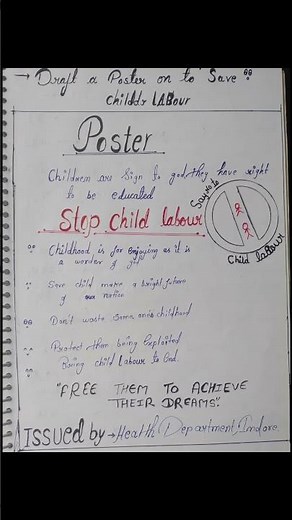 → Draft a Poster on to "Save
Childdr LABour
Poster
Children are Sign to god, they have right
to be educated
Say no to
Stop Child labour
Child labour
Childhood is for enjoying as it is
a wonder of gift
Save child make a bright future
of our nation
Don't waste childhood
Protect them being exploited
Bring child labour to End.
"FREE THEM TO ACHIEVE
THEIR DREAMS".
ISSUED by → Health Department, Indore.